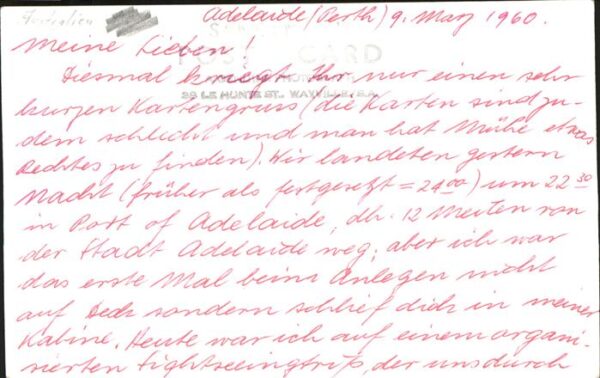 Australien
Adelaide (Perth) 9. May 1960.
Meine Lieben!
POST CARD
Diesmal kriegt Ihr nur einen sehr
39 LE HUNTE ST., WAYVILLE, S.A.
kurzen Kartengruss (die Karten sind zu-
dem schlecht und man hat Mühe etwas
Rechtes zu finden). Wir landeten gestern
Nacht (früher als festgesetzt = 24 00) um 22 30
in Port of Adelaide, dh. 12 Meilen von
der Stadt Adelaide weg; aber ich war
das erste Mal beim Anlegen nicht
auf Deck sondern schlief dick in meiner
Kabine. Heute war ich auf einem organi-
sierten Sightseeingtrip, der uns durch